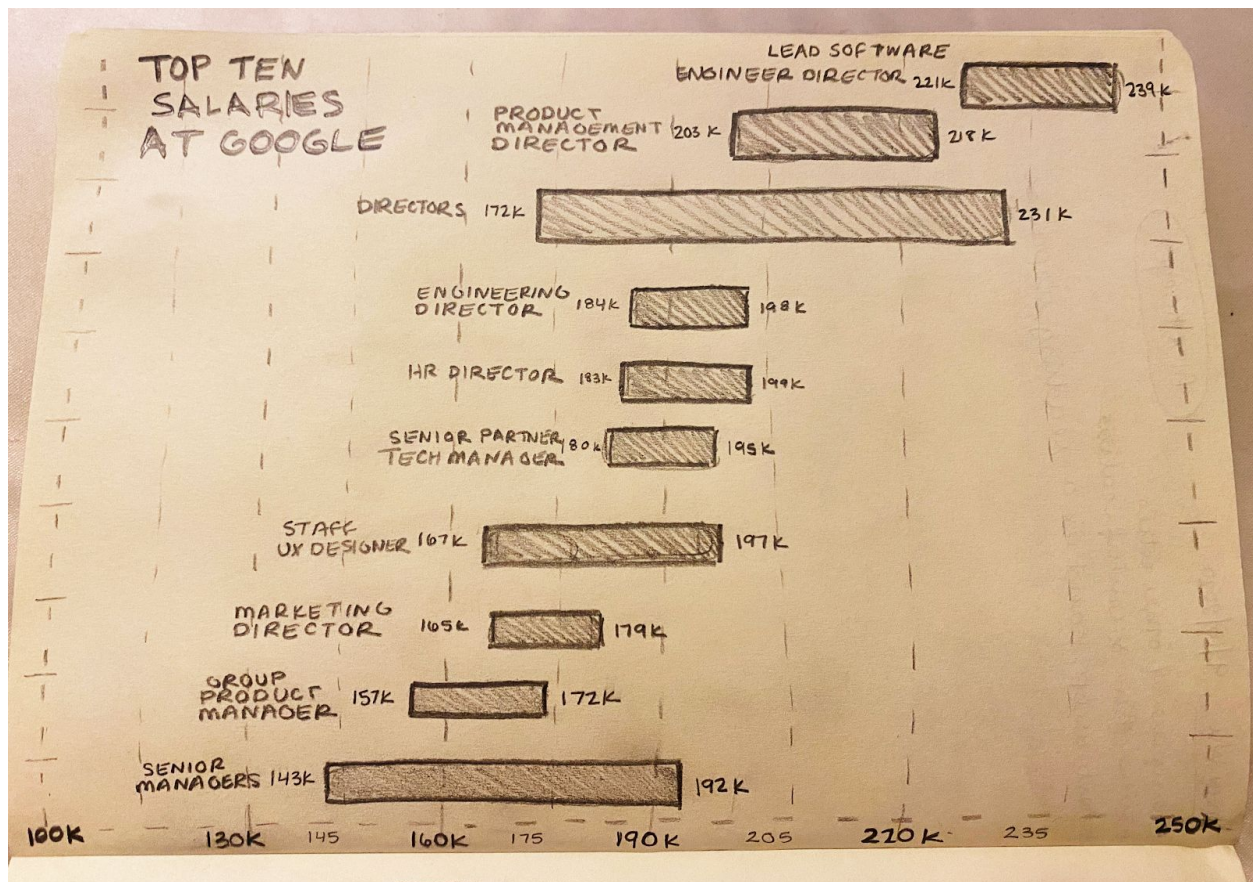 TOP TEN
SALARIES
AT GOOGLE
LEAD SOFTWARE
ENGINEER DIRECTOR 221K 239K
PRODUCT
MANAGEMENT
DIRECTOR 203K 218K
DIRECTORS 172K 231K
ENGINEERING
DIRECTOR 184K 198K
HR DIRECTOR 183K 199K
SENIOR PARTNER
TECH MANAGER 180K 195K
STAFF
UX DESIGNER 167K 197K
MARKETING
DIRECTOR 165K 179K
GROUP
PRODUCT
MANAGER 157K 172K
SENIOR
MANAGERS 143K 192K
100K 130K 145 160K 175 190K 205 220K 235 250K